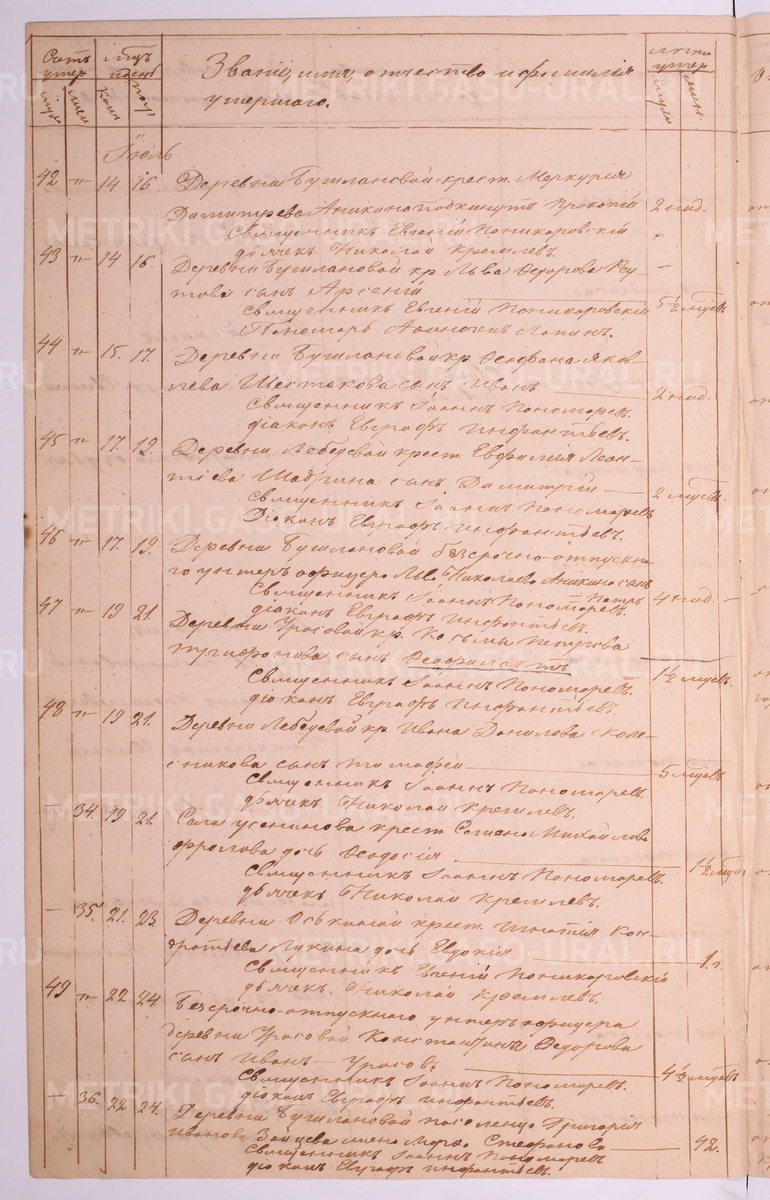 Счетъ умер
Мѣсяцъ и день
Званіе, имя, отчество и фамилія
умершаго.
Лѣта умер
муж.
жен.
Іюль
42 " 14 16 Деревни Бушлановой крест. Меркурія
Димитрева Аникина подкинутъ Прокопій 2 нед.
Священникъ Евгеній Поникаровскій
дьячекъ Николай Кремлевъ.
43 " 14 16. Деревни Бушлановой кр. Льва Ѳедорова
сынъ Арсеній 5½ мѣсяцъ
Священникъ Евгеній Поникаровскій
Пономарь Аѳиногенъ Лапинъ.
44 " 15. 17. Деревни Бушлановой кр. Ѳеофана Яков-
лева Шестакова сынъ Иванъ 2 нед.
Священникъ Іоаннъ Пономаревъ.
діаконъ Евграфъ Инфантьевъ.
45 " 17. 19. Деревни Лебедевой крест. Евфимія Леон-
тіева Шадрина сынъ Димитрій 2 мѣсяц.
Священникъ Іоаннъ Пономаревъ
Діаконъ Евграфъ Инфантьевъ.
46 " 17. 19. Деревни Бушлановой безсрочно-отпускна-
го унтеръ офицера Льва Николаева Аникина сынъ
Петръ 4 нед.
Священникъ Іоаннъ Пономаревъ.
діаконъ Евграфъ Инфантьевъ.
47 " 19 21. Деревни Урасовой кр. Косьмы Петрова
сынъ Ѳеофилактъ 1½ мѣсяц.
Священникъ Іоаннъ Пономаревъ.
діаконъ Евграфъ Инфантьевъ.
48 " 19 21. Деревни Лебедевой кр. Ивана Данилова Коле-
сникова сынъ Тимофей 5 мѣсяцъ
Священникъ Іоаннъ Пономаревъ.
дьячекъ Николай Кремлевъ.
— 34. 19 21. Села Усенинова крест. Семена Михайлова
Фролова дочь Ѳеодосія 1½ мѣсяц.
Священникъ Іоаннъ Пономаревъ.
дьячекъ Николай Кремлевъ.
— 35. 21. 23. Деревни Оськиной крест. Игнатія Кон-
дратьева Лукина дочь Евдокія 1. г.
Священникъ Евгеній Поникаровскій
дьячекъ. Николай Кремлевъ.
49 " 22 24. Безсрочно-отпускнаго унтеръ офицера
деревни Урасовой Константина Ѳедорова
сынъ Иванъ — Урасовъ. 4½ мѣсяцъ
Священникъ Іоаннъ Пономаревъ.
діаконъ Евграфъ Инфантьевъ.
— 36. 22 24. Деревни Бушлановой поселенца Григорія
Иванова Зайцева жена Марѳа Стефанова 42.
Священникъ Іоаннъ Пономаревъ
діаконъ Евграфъ Инфантьевъ.
METRIKI.GASO-URAL.RU